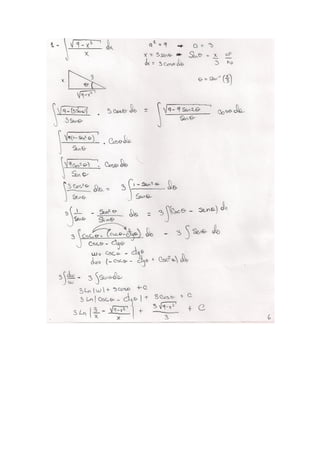 1- ∫ √9-x² / x dx   a² = 9 → a = 3
x = 3 senθ → Senθ = x/3
dx = 3 cosθ dθ
x   3   θ   √9-x²   θ = sen⁻¹ (x/3)
∫ √9-(3senθ)² / 3 Senθ . 3 cosθ dθ = ∫ √9-9 Sen²θ / Senθ Cosθ dθ
∫ √9(1-Sen²θ) / Senθ . Cosθ dθ
∫ √9cos²θ / Senθ . Cosθ dθ
∫ 3 cos²θ / Senθ dθ = 3 ∫ 1 - Sen²θ / Senθ dθ
3 ∫ 1/Senθ - Sen²θ/Senθ dθ = 3 ∫ (cscθ - senθ) dθ
3 ∫ cscθ . (cscθ - ctgθ) / cscθ - ctgθ dθ - 3 ∫ Senθ dθ
w = cscθ - ctgθ
dw = (-cscθ . ctgθ + Csc²θ) dθ
3 ∫ dw/w - 3 ∫ Senθ dθ
3 Ln |w| + 3 cosθ + C
3 Ln | cscθ - ctgθ | + 3 cosθ + C
3 Ln | 3/x - √9-x² / x | + 3 √9-x² / 3 + C
6